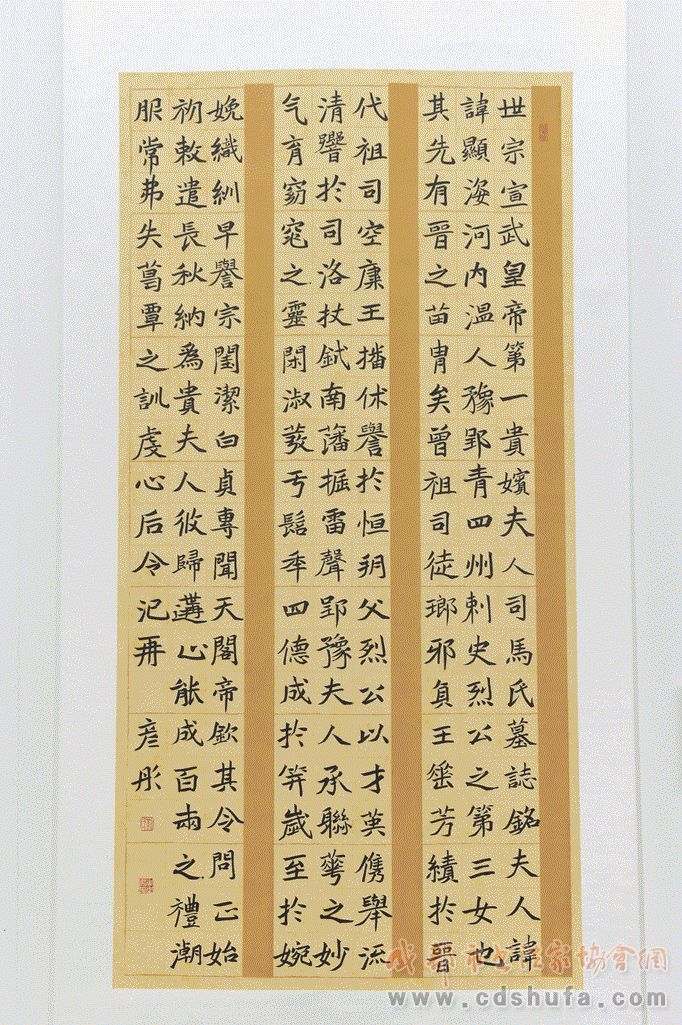 世宗宣武皇帝第一貴嬪夫人司馬氏墓誌銘夫人諱
諱顯姿河內溫人豫郢青四州刺史烈公之第三女也
其先有晉之苗胄矣曾祖司徒瑯邪貞王垂芳績於晉
代祖司空康王播休譽於恒朔父烈公以才英儁舉流
清響於司洛杖鉞南藩振雷聲郢豫夫人承聯華之妙
气育窈窕之靈閑淑發于髫年四德成於笄歲至於婉
娩織紃早譽宗閨潔白貞專聞天閣帝欽其令問正始
初敕遣長秋納為貴夫人彼歸遘止能成百兩之禮潮
服常弗失葛覃之訓虔心后令汜再
彥彤
成都市书法家協會網
www.cdshufa.com